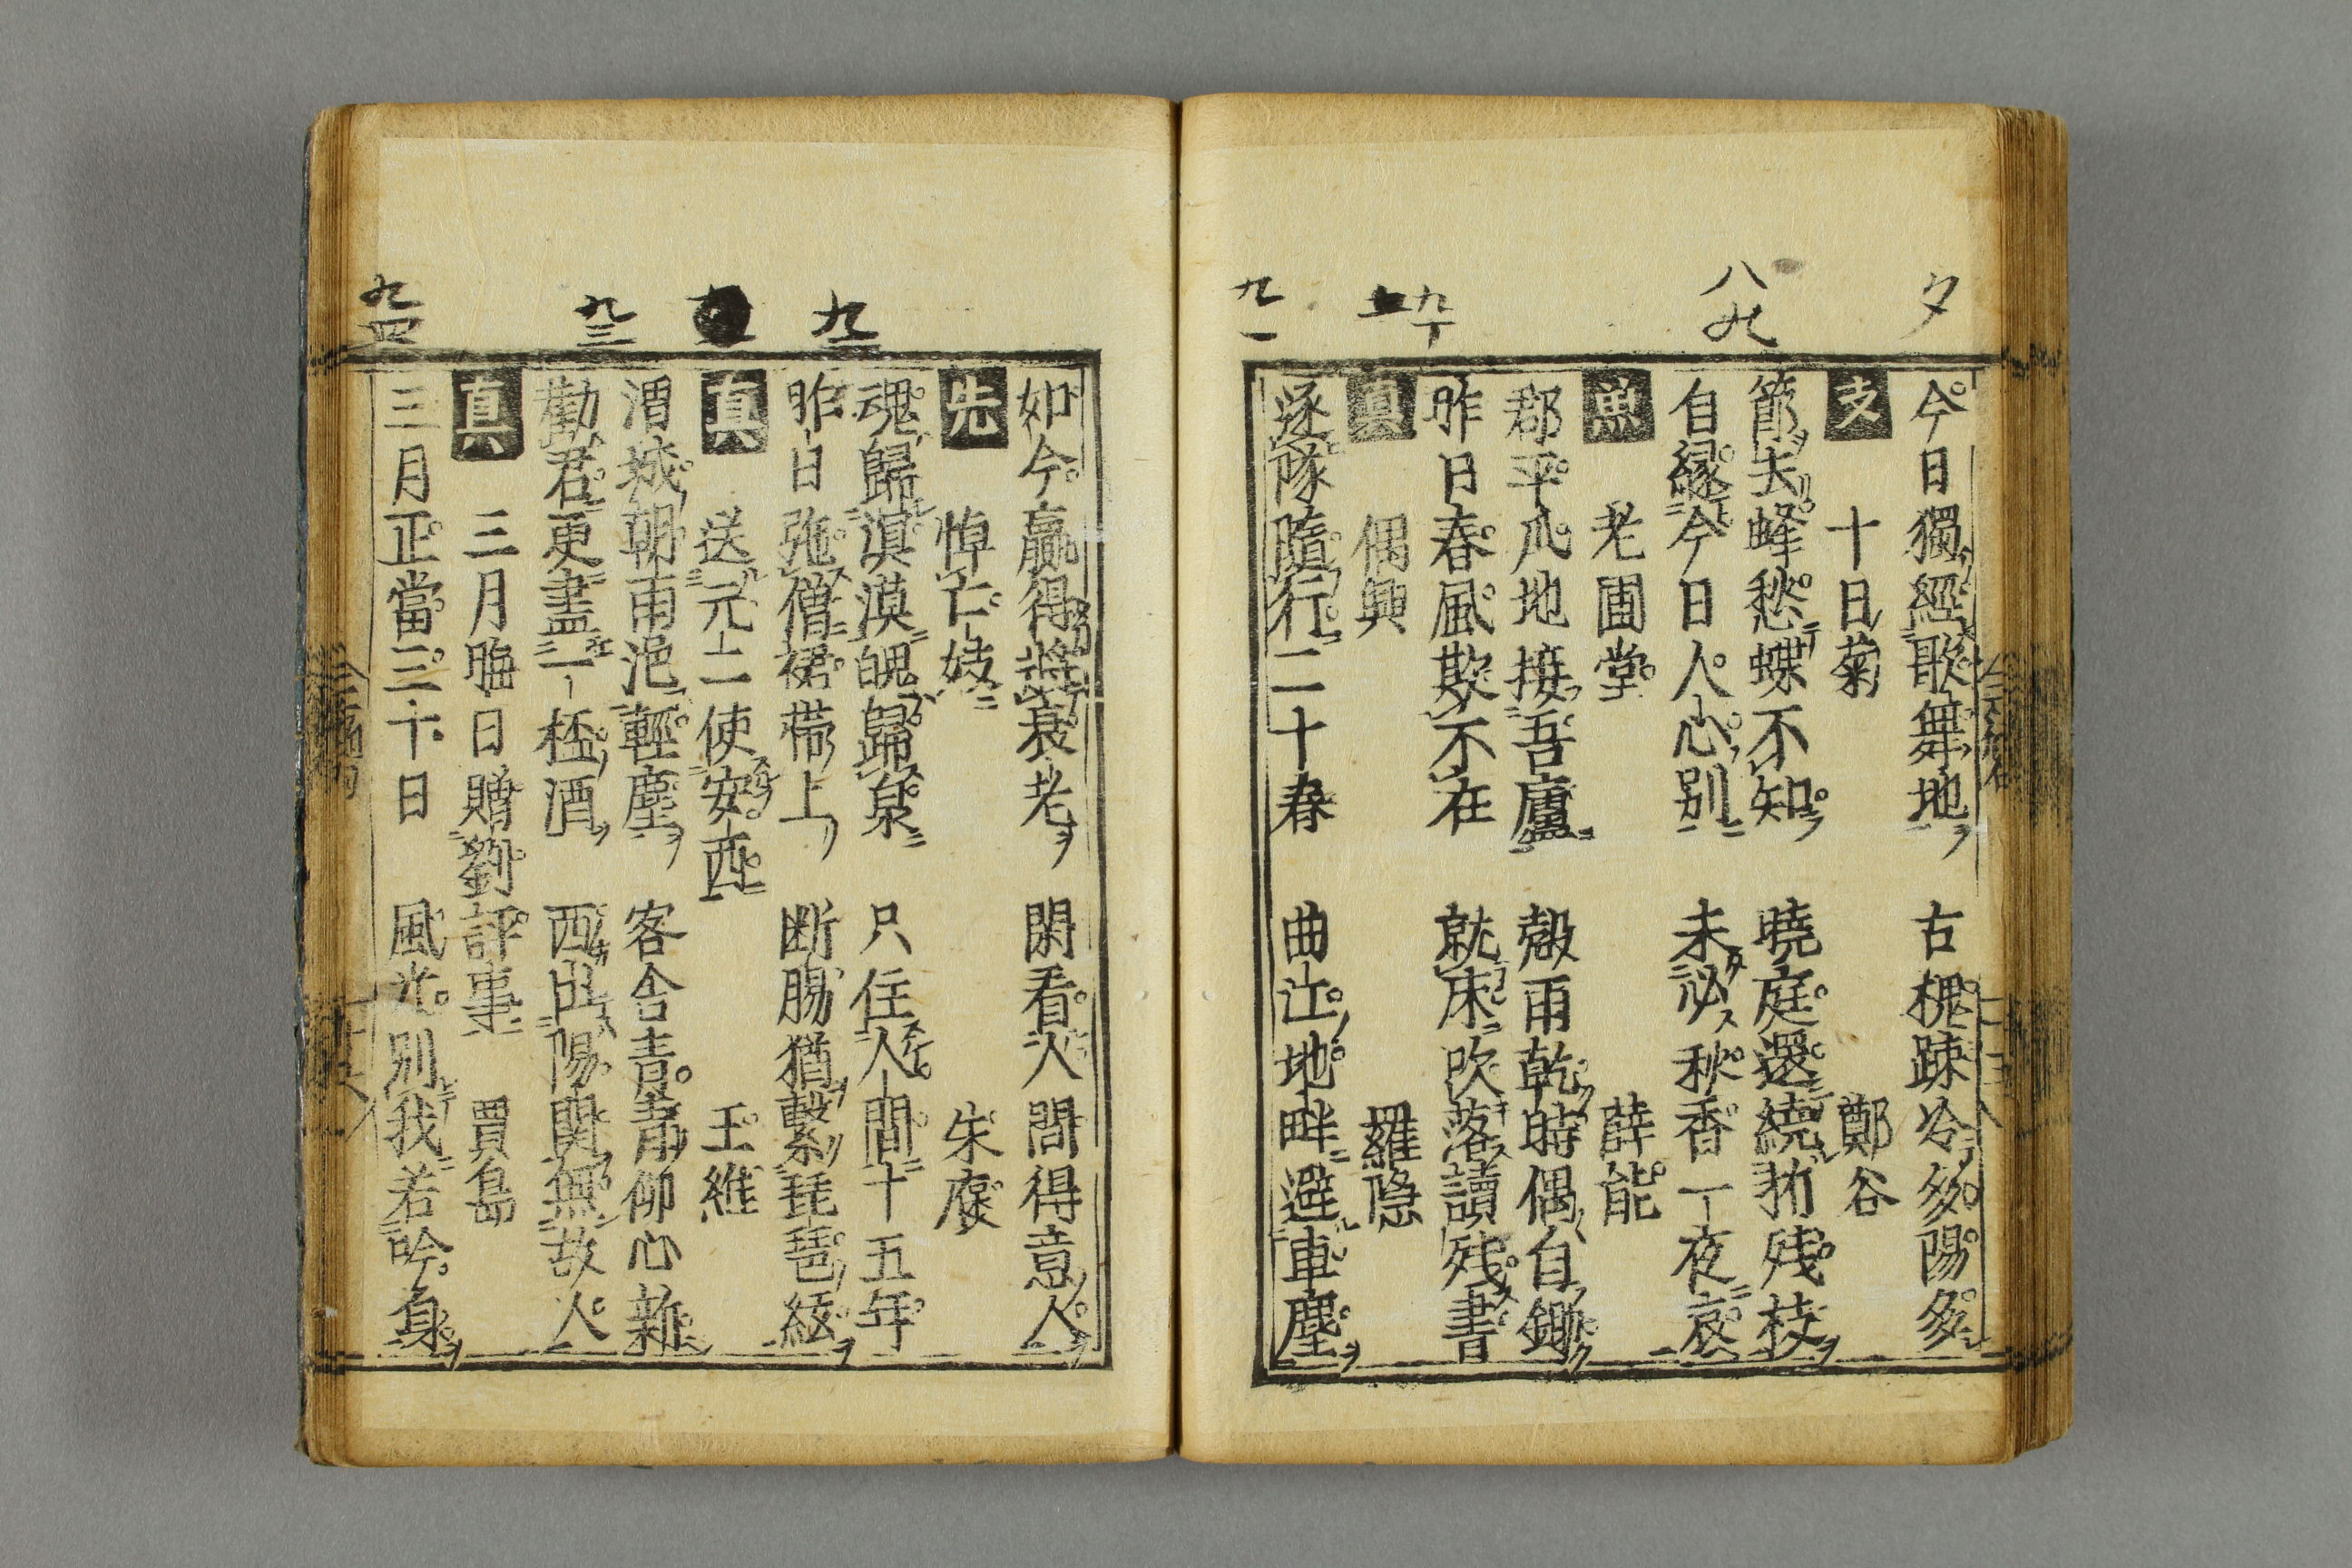 夕
八九
九十
九一
今日獨經歌舞地　古槐踈冷夛陽多
支　十日菊　鄭谷
節去蜂愁蝶不知　曉庭還繞折残枝
自縁今日人心別　未必秋香一夜衰
魚　老圃堂　薛能
郡平瓜地接吾廬　穀雨乾時偶自鋤
昨日春風欺不在　就床吹落讀残書
真　偶興　羅隠
逐隊隨行二十春　曲江地畔避車塵
九二
九三
九四
如今贏得將衰老　閑看人間得意人
先　悼亡妓　朱褒
魂歸溟漠魄歸泉　只住人間十五年
昨日施僧裙帯上　断腸猶繫琵琶絃
真　送元二使安西　王維
渭城朝雨浥輕塵　客舎青青柳色新
勸君更盡一杯酒　西出陽関無故人
真　三月晦日贈劉評事　賈島
三月正當三十日　風光別我若吟身